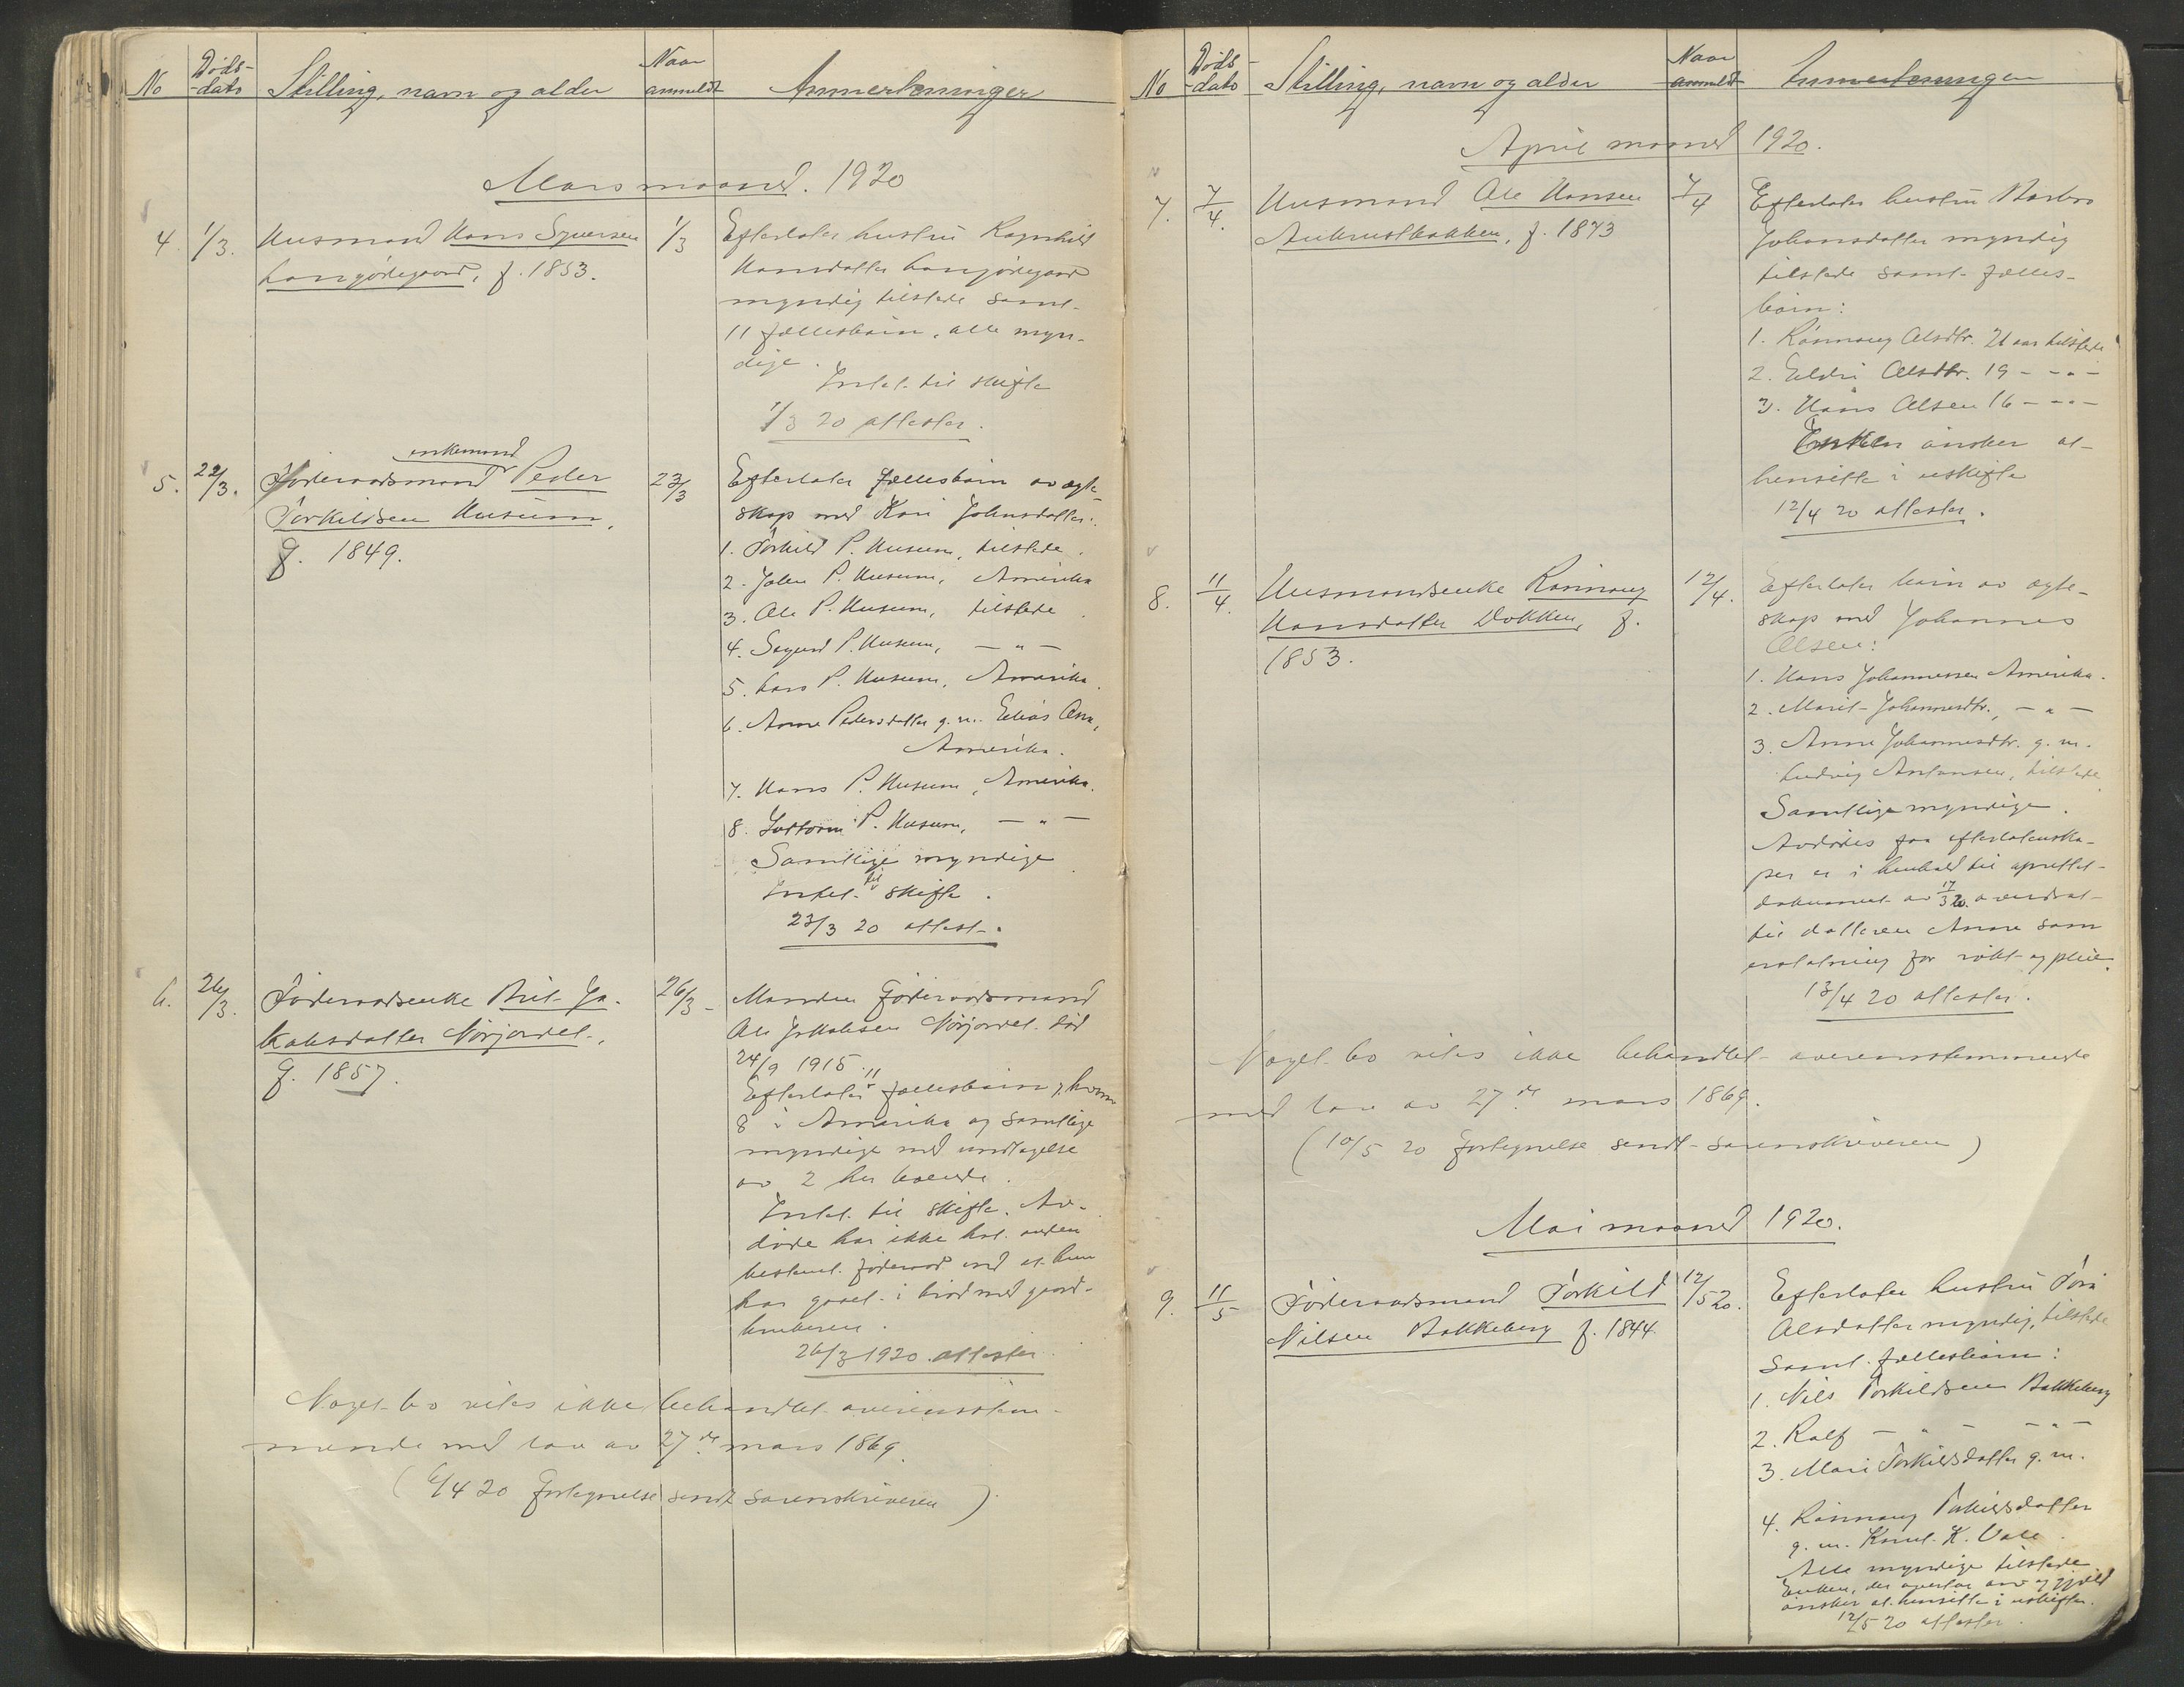 No Døds-dato Stilling, navn og alder Naar anmeldt Anmerkninger
Mars maaned. 1920
4. 1/3. Husmand Hans Syversen 1/3
Langødegaard, f. 1853.
Efterlater hustru Ragnhild
Hansdatter Langødegaard
myndig tilstede samt
11 fællesbørn, alle myn-
dige.
Intet til skifte
1/3 20 attester.
enkemand
5. 22/3. Føderaadsmand Peder 23/3
Torkildsen Husum,
f. 1849.
Efterlater fællesbørn av egte-
skap med Kari Johnsdatter:
1. Torkild P. Husum, tilstede.
2. John P. Husum, Amerika
3. Ole P. Husum, tilstede
4. Sygurd P. Husum, — " —
5. Lars P. Husum, Amerika.
6. Anne Pedersdatter g. m. Elias
Amerika.
7. Hans P. Husum, Amerika.
8. Guttorm P. Husum, — " —
Samtlige myndige
Intet til skifte.
23/3 20 attest.
6. 26/3. Føderaadsenke Brit Ja- 26/3
kobsdatter Nørjordet,
f. 1857.
Manden Føderaadsmand
Ole Jakobsen Nørjordet død
24/9 1915.
Efterlater 11 fællesbørn, hvorav
8 i Amerika og samtlige
myndige med undtagelse
av 2 her boende.
Intet til skifte. Av-
døde har ikke hat anden
bestemt føderaad end at hun
har gaaet i brød med gaard-
brukeren.
26/3 1920 attester
Noget bo vites ikke behandlet overensstem-
mende med lov av 27de mars 1869.
(6/4 20 fortegnelse sendt sorenskriveren)
No Døds-dato Stilling, navn og alder Naar anmeldt Anmerkninger
April maaned 1920.
7. 7/4. Husmand Ole Hansen 7/4
Aukrustbakken, f. 1873
Efterlater hustru Barbro
Johansdatter myndig
tilstede samt fælles-
børn:
1. Rønnaug Olsdtr. 21 aar tilstede
2. Eldri Olsdtr. 19 - - " -
3. Hans Olsen 16 - - " -
Enken ønsker at
hensitte i uskifte
12/4 20 attester.
8. 11/4. Husmandsenke Rønnaug 12/4.
Hansdatter Dokken, f.
1853.
Efterlater børn av egte-
skap med Johannes
Olsen:
1. Hans Johannessen Amerika.
2. Marit Johannesdtr., — " —
3. Anne Johannesdtr. g. m.
Ludvig Antonsen, tilstede
Samtlige myndige.
Avdødes faa efterlatenska-
per er i henhold til oprettet
dokument av 17/3 20 overdrat
til datteren Anne som
erstatning for røkt og pleie.
13/4 20 attester.
Noget bo vites ikke behandlet overensstemmende
med lov av 27de mars 1869.
(10/5 20 fortegnelse sendt sorenskriveren)
Mai maaned 1920.
9. 11/5 Føderaadsmand Torkild 12/5 20.
Nilsen Bakkeberg f. 1844.
Efterlater hustru Tora
Olsdatter myndig, tilstede
samt fællesbørn:
1. Nils Torkildsen Bakkeberg
2. Rolf — " — — " —
3. Mari Torkildsdatter g. m.
4. Rønnaug Torkildsdatter
g. m. Knut K. Vole.
Alle myndige tilstede
Enken, der overtar arv og gjæld
ønsker at hensitte i uskifte.
12/5 20 attester.